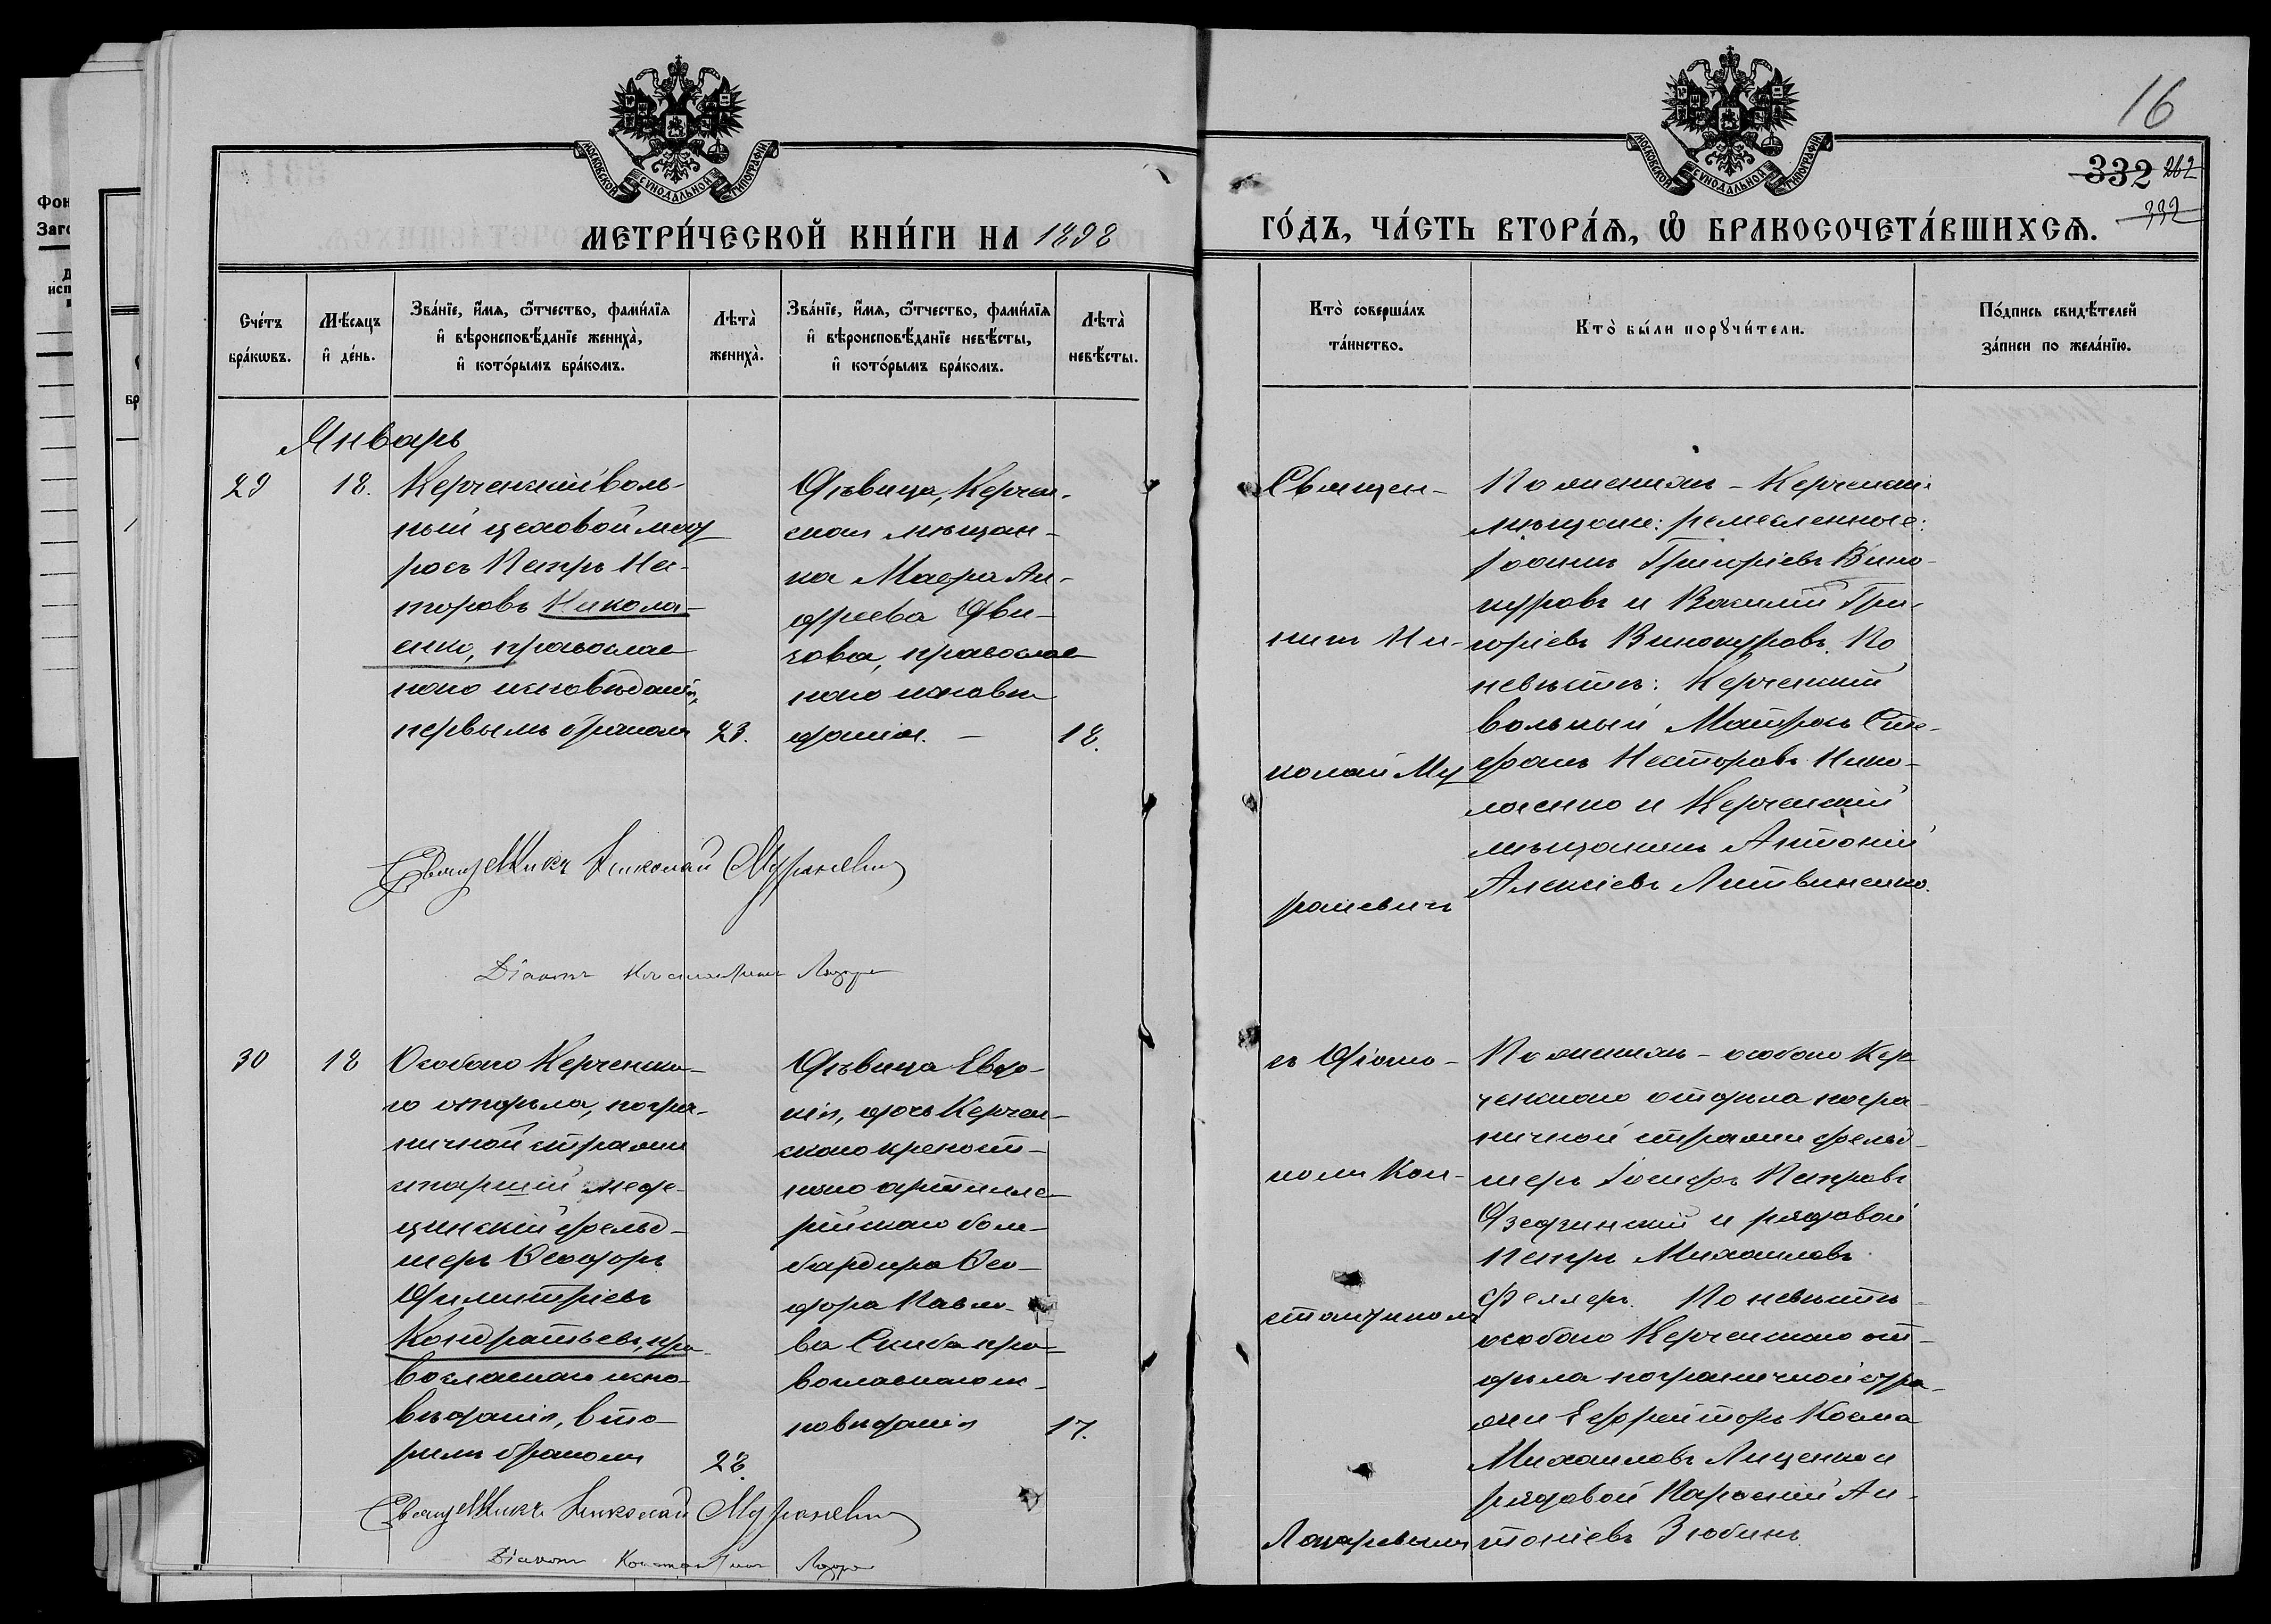 16
332 262
332
МОСКОВСКОЙ СѴНОДАЛЬНОЙ ТИПОГРАФІИ
МОСКОВСКОЙ СѴНОДАЛЬНОЙ ТИПОГРАФІИ
МЕТРИ́ЧЕСКОЙ КНИ́ГИ НА 1898
ГО́ДЪ, ЧА́СТЬ ВТОРА́Ѧ, Ѡ҆ БРАКОСОЧЕТА́ВШИХСѦ.
Сче́тъ бра́кѡвъ.
Мѣ́сѧцъ и҆ де́нь.
Зва́нїе, и҆́мѧ, ѻ҆́тчество, фами́лїѧ и҆ вѣроисповѣ́данїе жениха̀, и҆ кото́рымъ бра́комъ.
Лѣта̀ жениха̀.
Зва́нїе, и҆́мѧ, ѻ҆́тчество, фами́лїѧ и҆ вѣроисповѣ́данїе невѣ́сты, и҆ кото́рымъ бра́комъ.
Лѣта̀ невѣ́сты.
Кто̀ соверша́лъ та́инство.
Кто̀ бы́ли порꙋчи́тели.
По́дпись свидѣ́телей за́писи по жела́нїю.
Январь
29
18.
Керченскій воль-
ный цеховой мат
росъ Петръ Не-
сторовъ Никола-
енко, православ
наго исповѣданія,
первымъ бракомъ
23.
Дѣвица, Керчен-
ская мѣщан-
ка Мавра Ан-
дреева Дви-
гова, православ
наго исповѣ
данія. -
18.
Священ-
никъ Ни-
колай Му
раневичъ
По женихѣ - Керченскіе
мѣщане: ремесленные:
Іоаннъ Григоріевъ Вино-
куровъ и Василій Гри-
горіевъ Винокуровъ. По
невѣстѣ: Керченскій
вольный Матросъ Сте-
фанъ Несторовъ Нико-
лаенко и Керченскій
мѣщанинъ Антоній
Алексіевъ Литвиненко.
Священникъ Николай Мураневичъ
Діаконъ Константинъ
30
18
Особаго Керченска-
го отдѣла, погра-
ничной стражи
старшій меди-
цинскій фельд-
шеръ Ѳеодоръ
Димитріевъ
Кондратьевъ, пра-
вославнаго испо-
вѣданія, вто-
рымъ бракомъ
28.
Дѣвица Евдо-
кія, дочь Керчен-
скаго крепост-
наго артилле-
рійскаго бом-
бардира Ѳео-
дора Павло-
ва Скиба пра-
вославнаго ис-
повѣданія
17.
съ Діако-
номъ Кон-
стантиномъ
По женихѣ - особаго Кер
ченскаго отдѣла погра-
ничной стражи фельд-
шеръ Іосифъ Петровъ
и рядовой
Петръ Михаиловъ
По невѣстѣ
особаго Керченскаго от-
дѣла пограничной стра-
жи Ефрейторъ Косма
Михаиловъ Лищенко и
рядовой Ан-
тоніевъ Зюбинъ
Священникъ Николай Мураневичъ
Діаконъ Константинъ